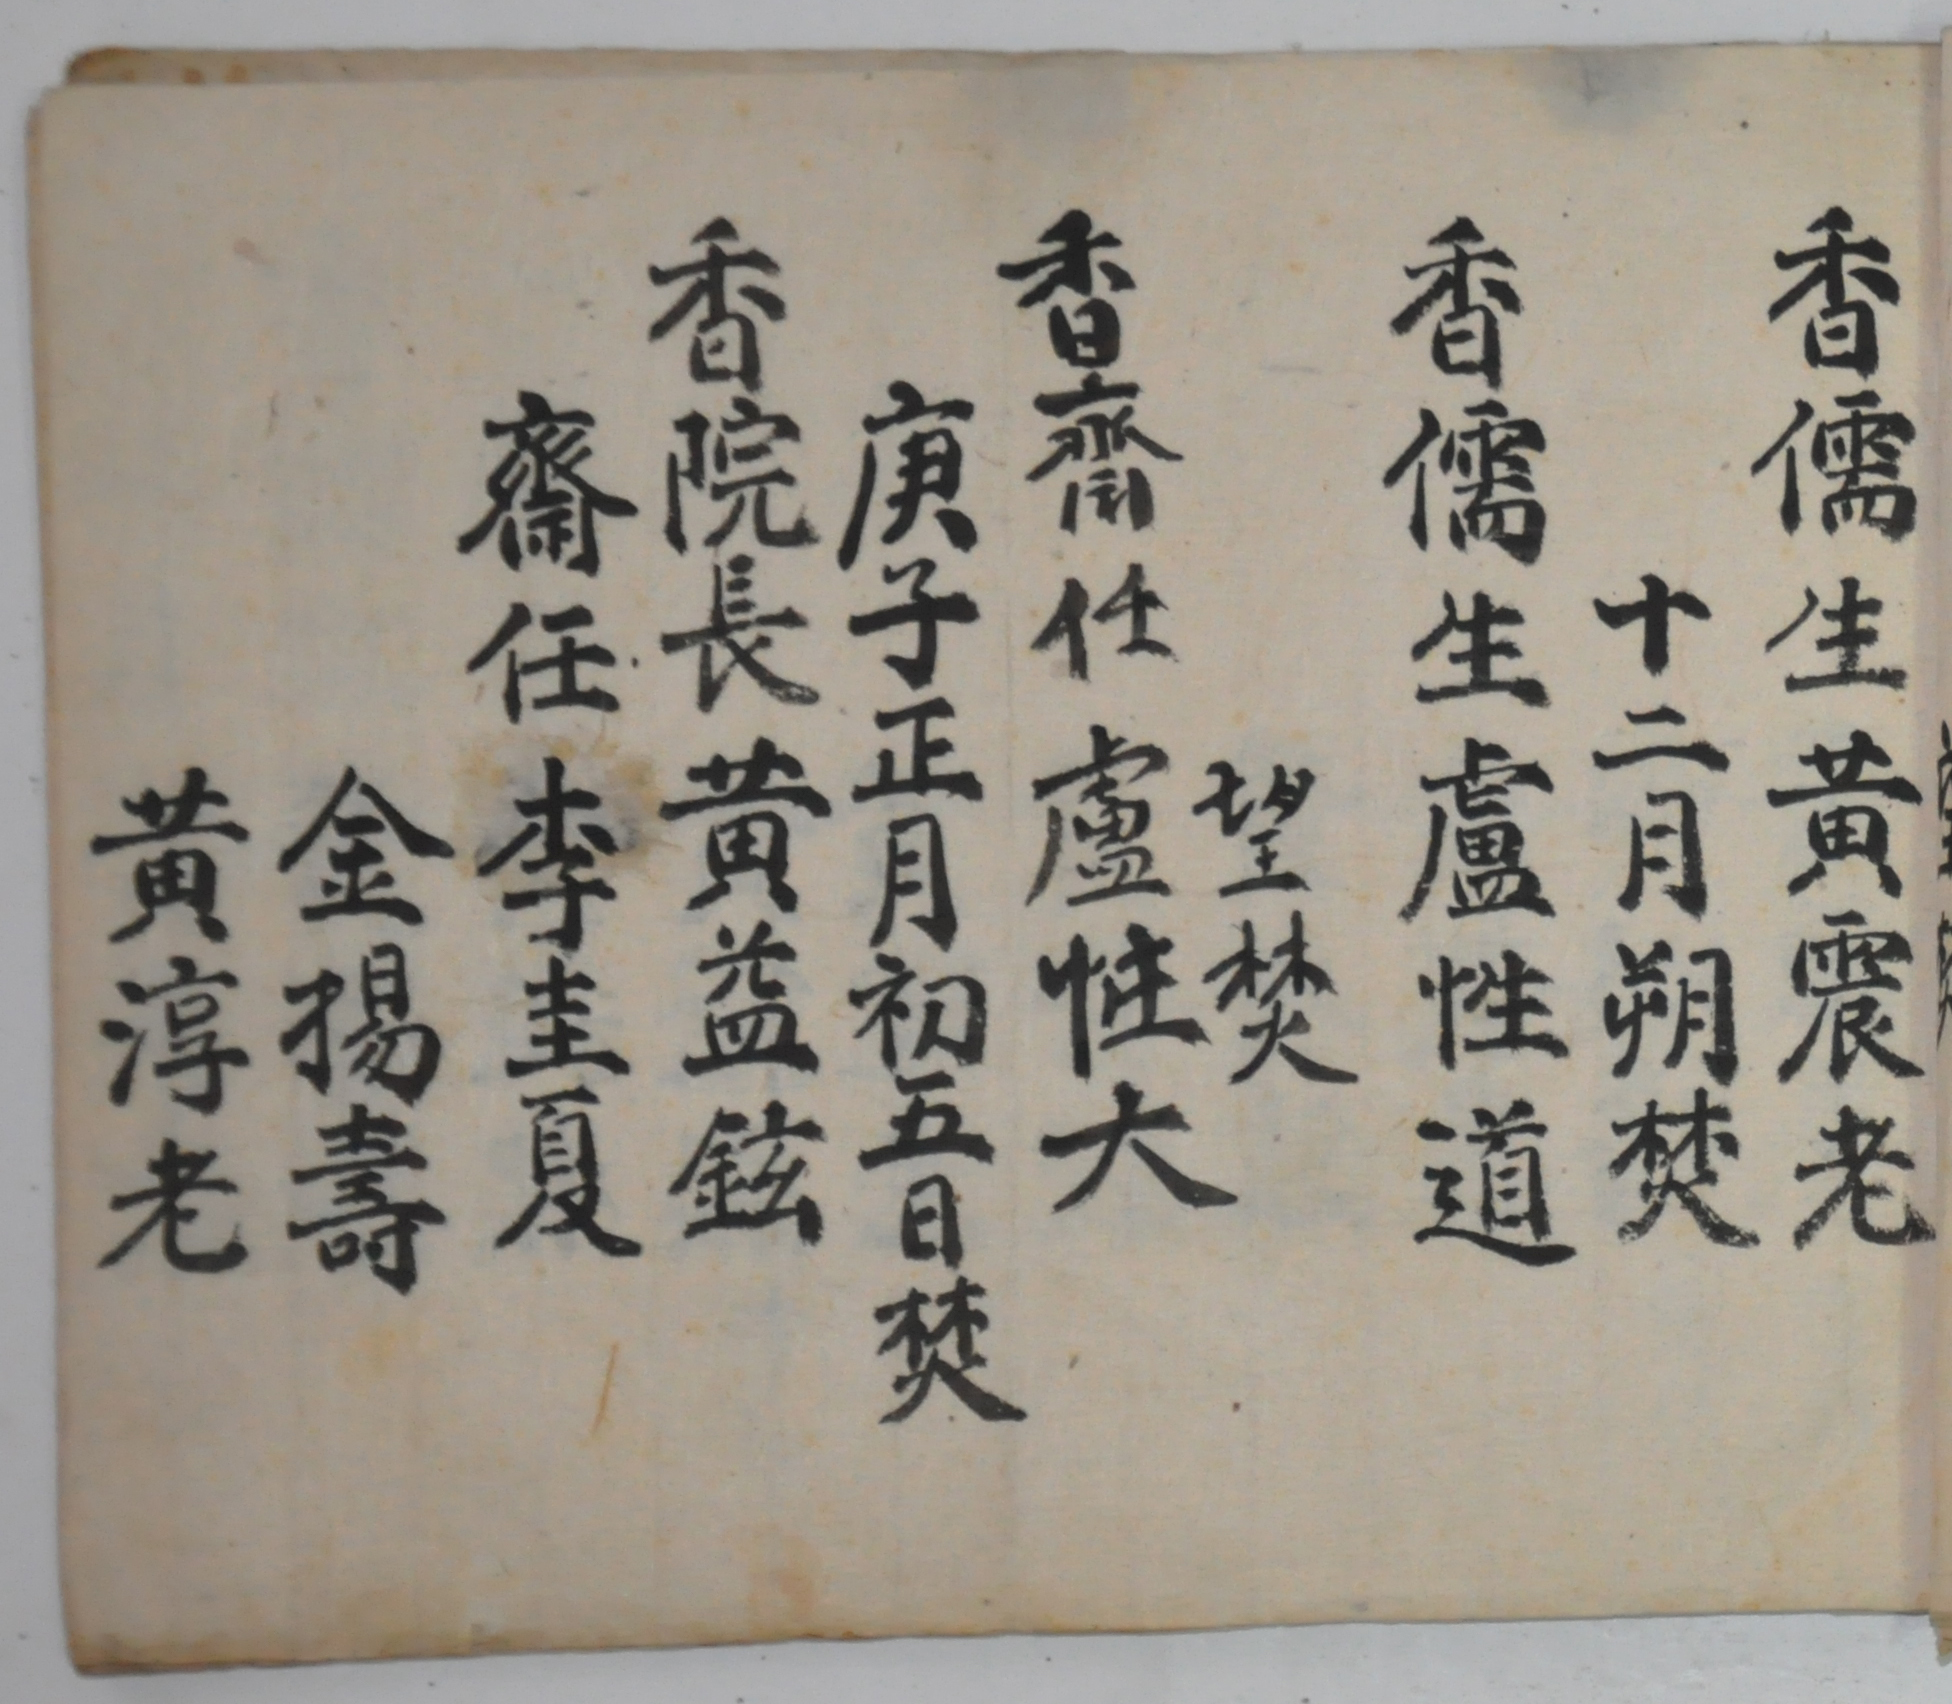 香儒生黃震老
十二月朔焚
香儒生盧性道
望焚
香齋任盧性大
庚子正月初五日焚
香院長黃益鉉
齋任李圭夏
金揚壽
黃淳老